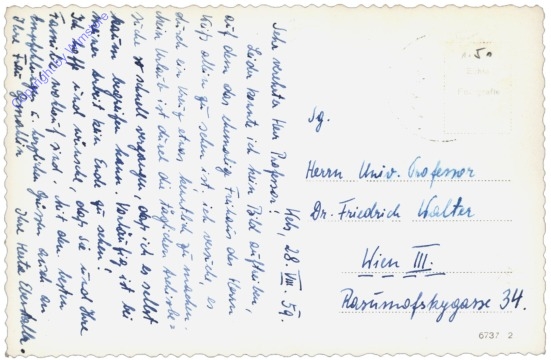 Wels, 28. VIII. 59.
Sehr verehrter Herr Professor!
Leider konnte ich kein Bild auftreiben,
auf dem das ehemalige Freihaus der Herrn
allein zu sehen ist, ich versuch, es
durch ein Kreuz etwas kenntlich zu machen.
Mein Urlaub ist durch die täglichen
so schnell vergangen, daß ich es selbst
kaum begreifen kann. Vorläufig ist bei
meiner Arbeit kein Ende zu sehen!
Ich hoffe und wünsche, daß Sie und Ihre
Familie wohlauf sind. Mit den besten
Empfehlungen u. herzlichen Grüssen auch an
Ihre Frau Gemahlin Ihre Herta
Sg.
Herrn Univ. Professor
Dr. Friedrich Walter
Wien III.
Rasumofskygasse 34.
6737 2